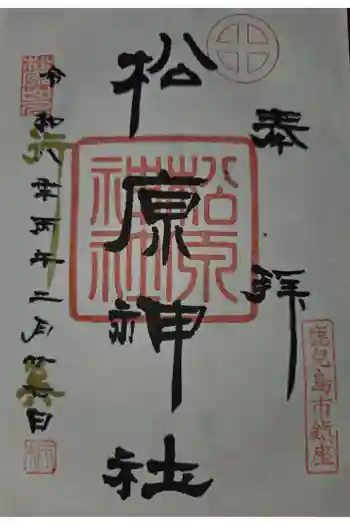 奉拝
鹿児島市鎮座
松原神社
松原神社
令和八年丙午二月
日